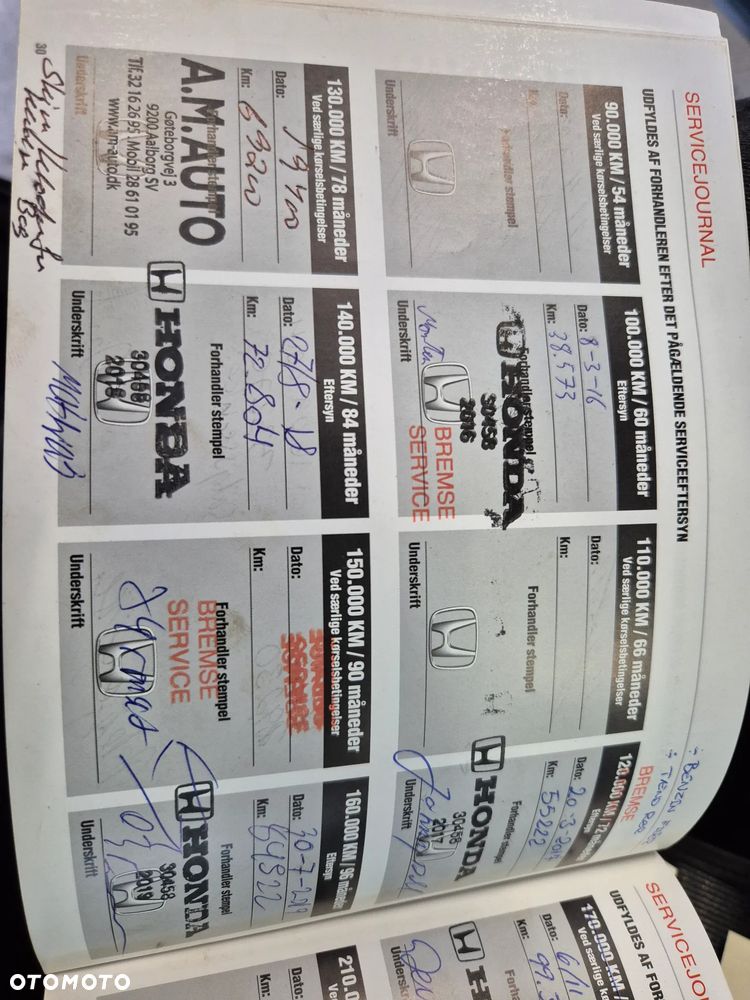 SERVICEJOURNAL
UDFYLDES AF FORHANDLEREN EFTER DET PÅGÆLDENDE SERVICEEFTERSYN
90.000 KM / 54 måneder
Ved særlige kørselsbetingelser
Dato:
Km:
Forhandler stempel
Underskrift
100.000 KM / 60 måneder
Eftersyn
Dato: 8-3-16
Km: 38.573
Forhandler stempel
HONDA
30458
2016
BREMSE
SERVICE
Underskrift
110.000 KM / 66 måneder
Ved særlige kørselsbetingelser
Dato:
Km:
Forhandler stempel
Underskrift
BENZIN
BREMSE
120.000 KM / 72
Eftersyn
Dato: 20-3-
Km: 55222
Forhandler stempel
HONDA
30458
2017
Underskrift
130.000 KM / 78 måneder
Ved særlige kørselsbetingelser
Dato:
Km: 69200
Forhandler stempel
A.M. AUTO
Gøteborgvej 3
9200 Aalborg SV
Tlf. 32 16 26 95 , Mobil 28 61 01 95
www.am-auto.dk
Underskrift
140.000 KM / 84 måneder
Eftersyn
Dato: 27/8-18
Km: 72.804
Forhandler stempel
HONDA
30458
2018
Underskrift
150.000 KM / 90 måneder
Ved særlige kørselsbetingelser
Dato:
Km:
Forhandler stempel
BREMSE
SERVICE
Underskrift
160.000 KM / 96 måneder
Eftersyn
Dato: 30-7-
Km: 84822
Forhandler stempel
HONDA
30458
2019
Underskrift
30
SERVICEJO
UDFYLDES AF FOR
170.000 KM
Ved særlige
Dato: 6/1
Km: 99.
Underskri
210.0
OTOMOTO